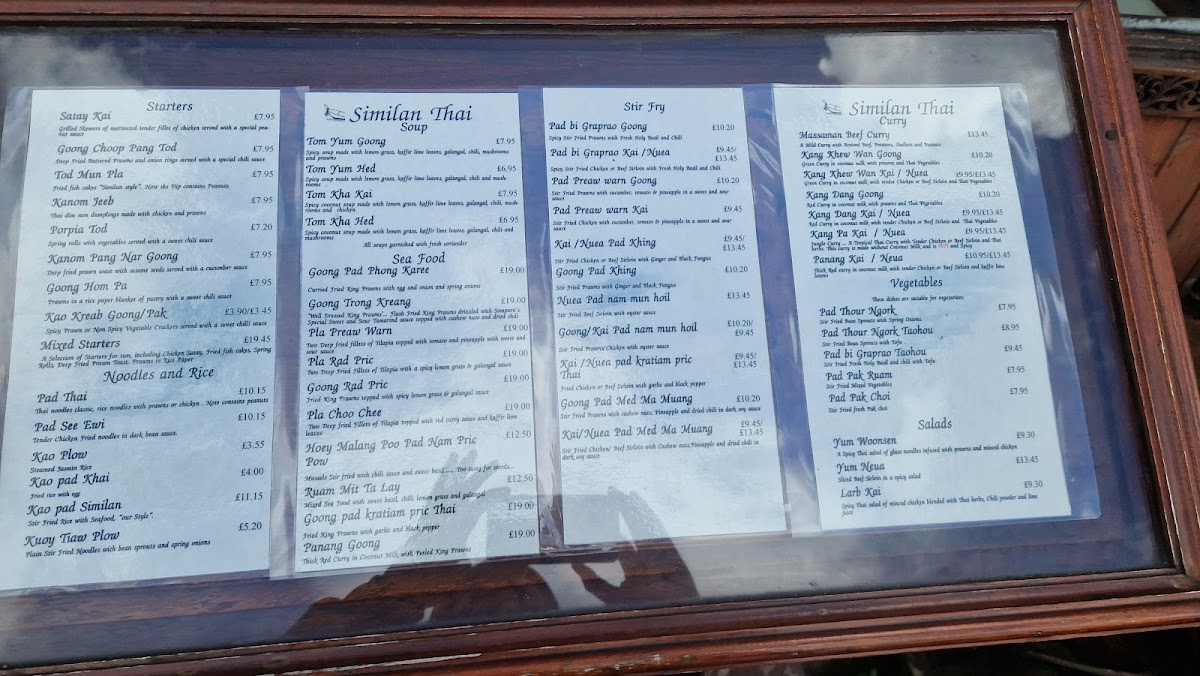 Starters
Satay Kai £7.95
Grilled Skewers of marinated tender fillet of chicken served with a special peanut sauce
Goong Choop Pang Tod £7.95
Deep Fried Battered Prawns and onion rings served with a special chili sauce
Tod Mun Pla £7.95
Fried fish cakes "Similan style". Note the Dip contains Peanuts.
Kanom Jeeb £7.95
Thai dim sum dumplings made with chicken and prawns
Porpia Tod £7.20
Spring rolls with vegetables served with a sweet chili sauce
Kanom Pang Nar Goong £7.95
Deep fried prawn toast with sesame seeds served with a cucumber sauce
Goong Hom Pa £7.95
Prawns in a rice paper blanket of pastry with a sweet chili sauce
Kao Kreab Goong/Pak £3.90/£3.45
Spicy Prawn or Non Spicy Vegetable Crackers served with a sweet chilli sauce
Mixed Starters £19.45
A Selection of Starters for two, including Chicken Satay, Fried fish cakes, Spring
Rolls, Deep Fried Prawn Toast, Prawns in Rice Paper
Noodles and Rice
Pad Thai £10.15
Thai noodles classic, rice noodles with prawns or chicken . Note contains peanuts
Pad See Ewi £10.15
Tender Chicken Fried noodles in dark bean sauce.
Kao Plow £3.55
Steamed Jasmin Rice
Kao pad Khai £4.00
Fried rice with egg
Kao pad Similan £11.15
Stir Fried Rice with Seafood, "our Style".
Kuoy Tiaw Plow £5.20
Plain Stir Fried Noodles with bean sprouts and spring onions
Similan Thai
Soup
Tom Yum Goong £7.95
Spicy soup made with lemon grass, kaffir lime leaves, galangal, chili, mushrooms
and prawns
Tom Yum Hed £6.95
Spicy soup made with lemon grass, kaffir lime leaves, galangal, chili and mush-
rooms
Tom Kha Kai £7.95
Spicy coconut soup made with lemon grass, kaffir lime leaves, galangal, chili, mush-
rooms and chicken
Tom Kha Hed £6.95
Spicy coconut soup made with lemon grass, kaffir lime leaves, galangal, chili and
mushrooms
All soups garnished with fresh coriander
Sea Food
Goong Pad Phong Karee £19.00
Curried Fried King Prawns with egg and onion and spring onions
Goong Trong Kreang £19.00
'Well Dressed King Prawns'... Flash Fried King Prawns drizzled with Somporn's
Special Sweet and Sour Tamarind sauce topped with cashew nuts and dried chili
Pla Preaw Warn £19.00
Two Deep fried fillets of Tilapia topped with tomato and pineapple with sweet and
sour sauce
Pla Rad Pric £19.00
Two Deep Fried Fillets of Tilapia with a spicy lemon grass & galangal sauce
Goong Rad Pric £19.00
Fried King Prawns topped with spicy lemon grass & galangal sauce
Pla Choo Chee £19.00
Two Deep fried fillets of Tilapia topped with red curry sauce and kaffir lime
leaves
Hoey Malang Poo Pad Nam Pric £12.50
Pow
Mussels Stir fried with chili sauce and sweet basil..... Too tasty for words.
Ruam Mit Ta Lay £12.50
Mixed Sea Food with sweet basil, chili, lemon grass and galangal
Goong pad kratiam pric Thai £19.00
Fried King Prawns with garlic and black pepper
Panang Goong £19.00
Thick Red Curry in Coconut Milk with Peeled King Prawns
Stir Fry
Pad bi Graprao Goong £10.20
Spicy Stir Fried Prawns with Fresh Holy Basil and Chili
Pad bi Graprao Kai /Nuea £9.45/
£13.45
Spicy Stir Fried Chicken or Beef Sirloin with Fresh Holy Basil and Chili
Pad Preaw warn Goong £10.20
Stir Fried Prawns with cucumber, tomato & pineapple in a sweet and sour
sauce
Pad Preaw warn Kai £9.45
Stir Fried Chicken with cucumber, tomato & pineapple in a sweet and sour
sauce
Kai /Nuea Pad Khing £9.45/
£13.45
Stir Fried Chicken or Beef Sirloin with Ginger and Black Fungus
Goong Pad Khing £10.20
Stir Fried Prawns with Ginger and Black Fungus
Nuea Pad nam mun hoil £13.45
Stir Fried Beef Sirloin with oyster sauce
Goong/Kai Pad nam mun hoil £10.20/
£9.45
Stir Fried Prawns/Chicken with oyster sauce
Kai /Nuea pad kratiam pric £9.45/
Thai £13.45
Fried Chicken or Beef Sirloin with garlic and black pepper
Goong Pad Med Ma Muang £10.20
Stir Fried Prawns with cashew nuts, Pineapple and dried chili in dark soy sauce
Kai/Nuea Pad Med Ma Muang £9.45/
£13.45
Stir Fried Chicken/ Beef Sirloin with Cashew nuts,Pineapple and dried chili in
dark soy sauce
Similan Thai
Curry
Massaman Beef Curry £13.45
A Mild Curry with Braised Beef, Potatoes, Shallots and Peanuts
Kang Khew Wan Goong £10.20
Green Curry in coconut milk with prawns and Thai Vegetables
Kang Khew Wan Kai / Nuea £9.95/£13.45
Green Curry in coconut milk with tender Chicken or Beef Sirloin and Thai Vegetables
Kang Dang Goong £10.20
Red Curry in coconut milk with prawns and Thai Vegetables
Kang Dang Kai / Nuea £9.95/£13.45
Red Curry in coconut milk with tender Chicken or Beef Sirloin and Thai Vegetables
Kang Pa Kai / Nuea £9.95/£13.45
Jungle Curry ... A Tropical Thai Curry with Tender Chicken or Beef Sirloin and Thai
herbs. This curry is made without Coconut Milk and is NOT and Spicy
Panang Kai / Neua £10.95/£13.45
Thick Red curry in coconut milk with tender Chicken or Beef Sirloin and kaffir lime
leaves
Vegetables
These dishes are suitable for vegetarians
Pad Thour Ngork £7.95
Stir Fried Bean Sprouts with Spring Onions
Pad Thour Ngork Taohou £8.95
Stir Fried Bean Sprouts with Tofu
Pad bi Graprao Taohou £9.45
Stir Fried Fresh Holy Basil and chili with Tofu
Pad Pak Ruam £7.95
Stir Fried Mixed Vegetables
Pad Pak Choi £7.95
Stir Fried fresh Pak choi
Salads
Yum Woonsen £9.30
A Spicy Thai salad of glass noodles infused with prawns and minced chicken
Yum Neua £13.45
Sliced Beef Sirloin in a spicy salad
Larb Kai £9.30
Spicy Thai salad of minced chicken blended with Thai herbs, Chili powder and lime
juice